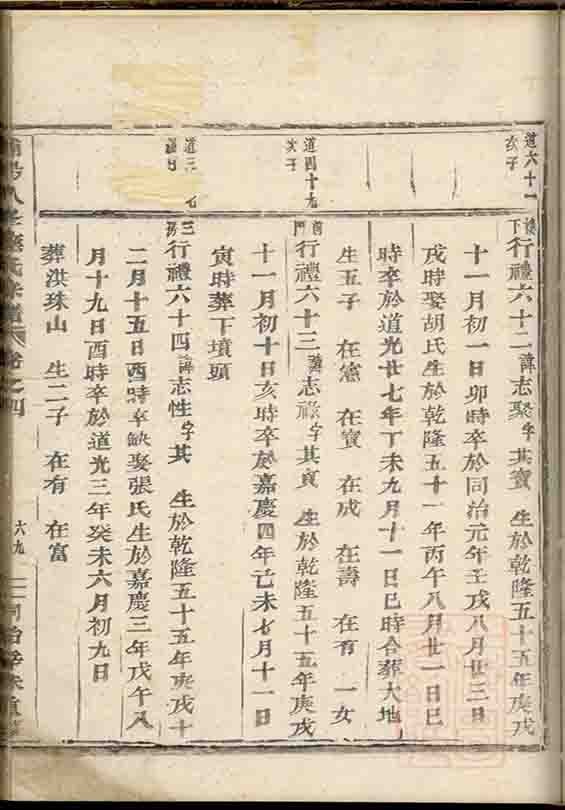 道六十一
次子
樓下
行禮六十二諱志聚字其寶 生於乾隆五十五年庚戌
十一月初一日卯時卒於同治元年壬戌八月廿三日
戌時娶胡氏生於乾隆五十一年丙午八月廿一日巳
時卒於道光廿七年丁未九月十一日巳時合葬大地
生五子 在憲 在寶 在成 在壽 在有 一女
道四十九
次子
前門
行禮六十三諱志祿字其貢 生於乾隆五十五年庚戌
十一月初十日亥時卒於嘉慶四年己未七月十一日
寅時葬下墳頭
道三 七
三房
行禮六十四諱志性字其 生於乾隆五十五年庚戌十
二月十五日酉時卒缺娶張氏生於嘉慶三年戊午八
月十九日酉時卒於道光三年癸未六月初九日
葬洪珠山 生二子 在有 在富
氏宗譜 卷之四 六九 同治辛未重